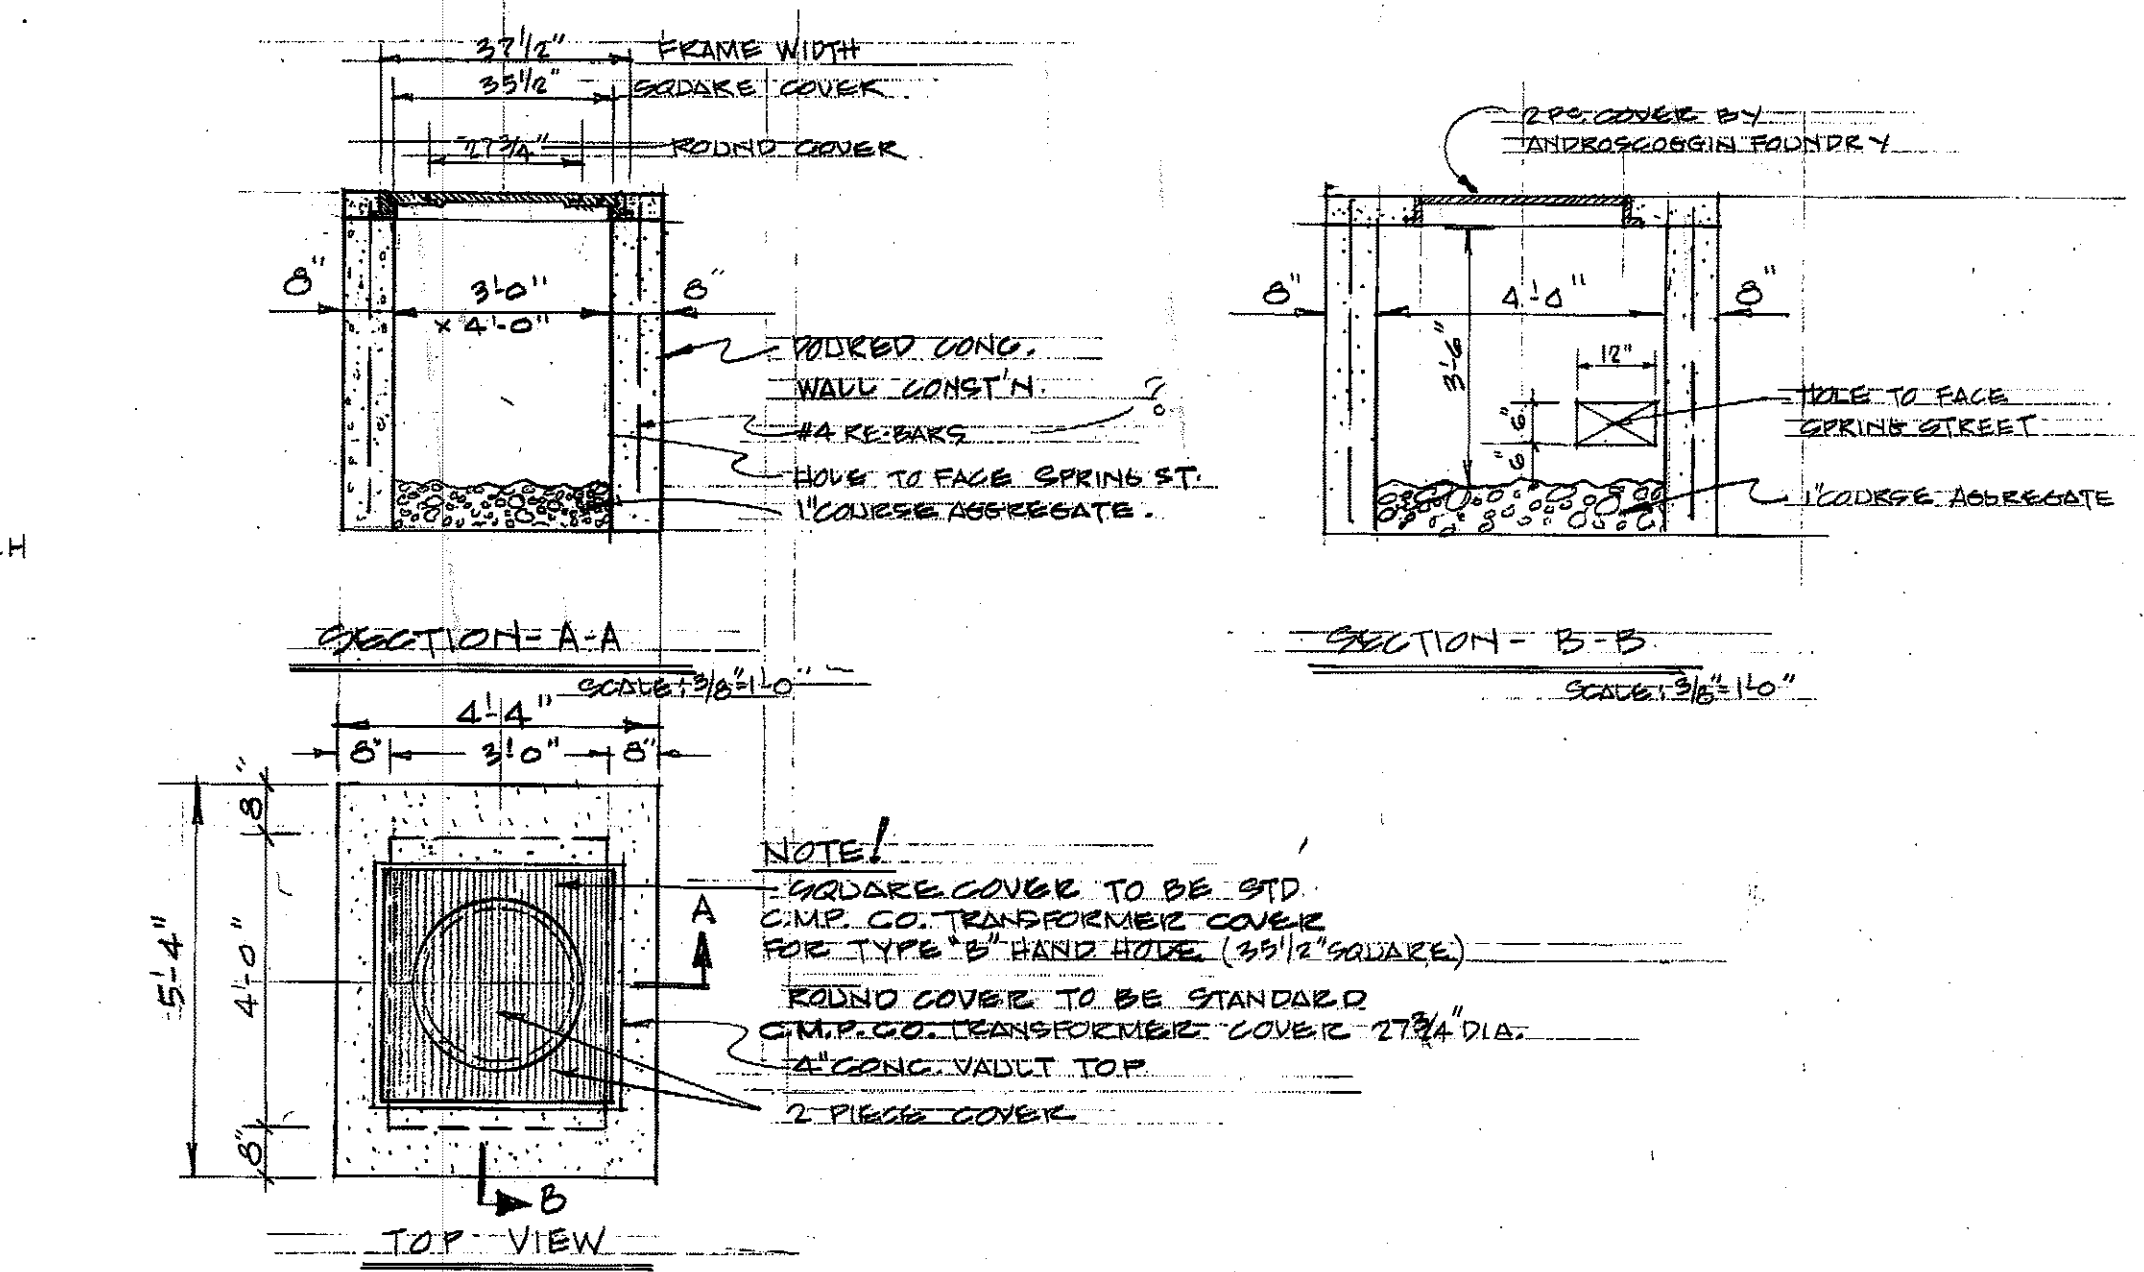 37 1/2" FRAME WIDTH
35 1/2" SQUARE COVER
27 3/4" ROUND COVER
8" 3'-0" 8"
x 4'-0"
POURED CONC.
WALL CONST'N.
#4 RE-BARS ?
HOLE TO FACE SPRING ST.
1" COURSE AGGREGATE.
SECTION - A-A
SCALE: 3/8"=1'-0"
2 PC. COVER BY
ANDROSCOGGIN FOUNDRY
8" 4'-0" 8"
3'-6"
12"
6"
6"
HOLE TO FACE
SPRING STREET
1" COURSE AGGREGATE
SECTION - B-B
SCALE: 3/8"=1'-0"
4'-4"
8" 3'-0" 8"
8"
5'-4"
4'-0"
8"
A
B
NOTE!
SQUARE COVER TO BE STD.
C.M.P. CO. TRANSFORMER COVER
FOR TYPE "B" HAND HOLE (35 1/2" SQUARE)
ROUND COVER TO BE STANDARD
C.M.P. CO. TRANSFORMER COVER 27 3/4" DIA.
4" CONC. VAULT TOP
2 PIECE COVER
TOP VIEW